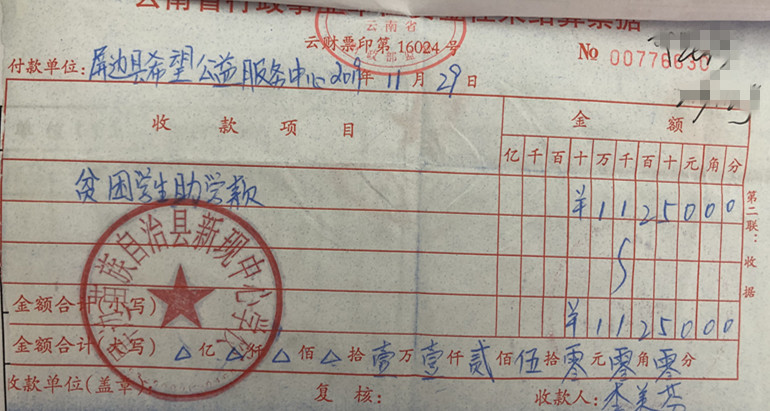 云南省行政事业单位资金往来结算票据
云财票印第 16024 号
云南省
№ 00776630
付款单位: 屏边县希望公益服务中心 2019年 11 月 29 日
收款项目 金额
亿 千 百 十 万 千 百 十 元 角 分
贫困学生助学款 ¥1125000
第二联:收据
族自治县新现中心学校
金额合计(小写) ¥1125000
金额合计(大写) 亿 仟 佰 拾 壹 万 壹 仟 贰 佰 伍 拾 零 元 零 角 零 分
收款单位(盖章): 复核: 收款人: